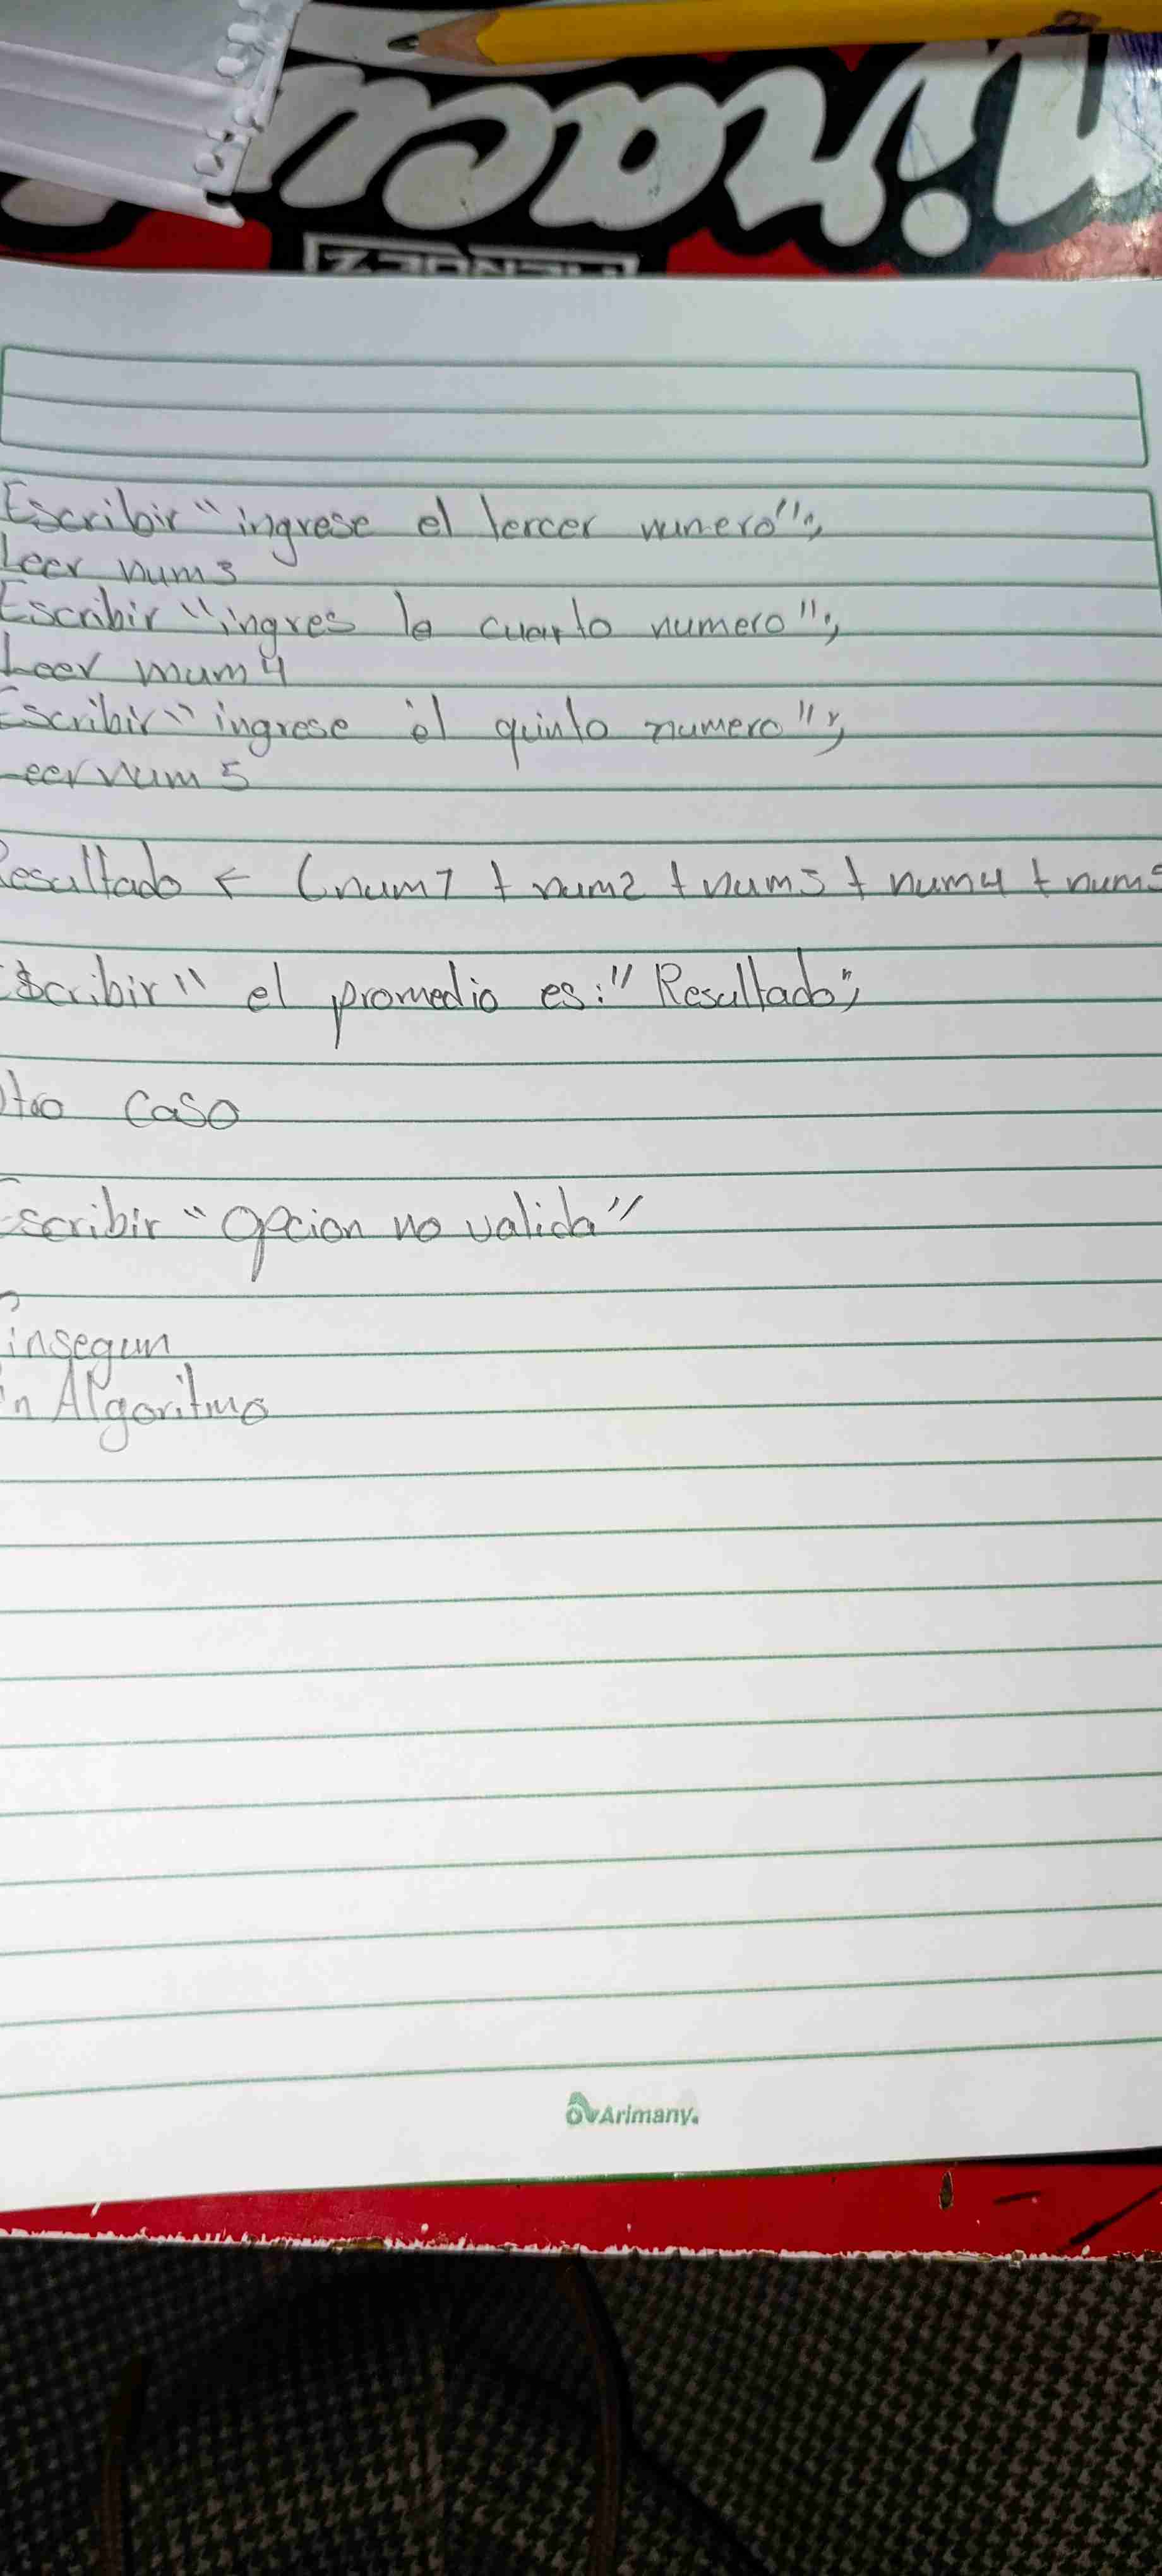 Escribir "ingrese el tercer numero";
Leer num3
Escribir "ingres le cuarto numero";
Leer mum4
Escribir "ingrese el quinto numero";
eer num5
Resultado ← (num1 + num2 + num3 + num4 + num5
Escribir" el promedio es:" Resultado";
Otro Caso
Escribir "Opcion no valida"
insegun
in Algoritmo
Arimany.